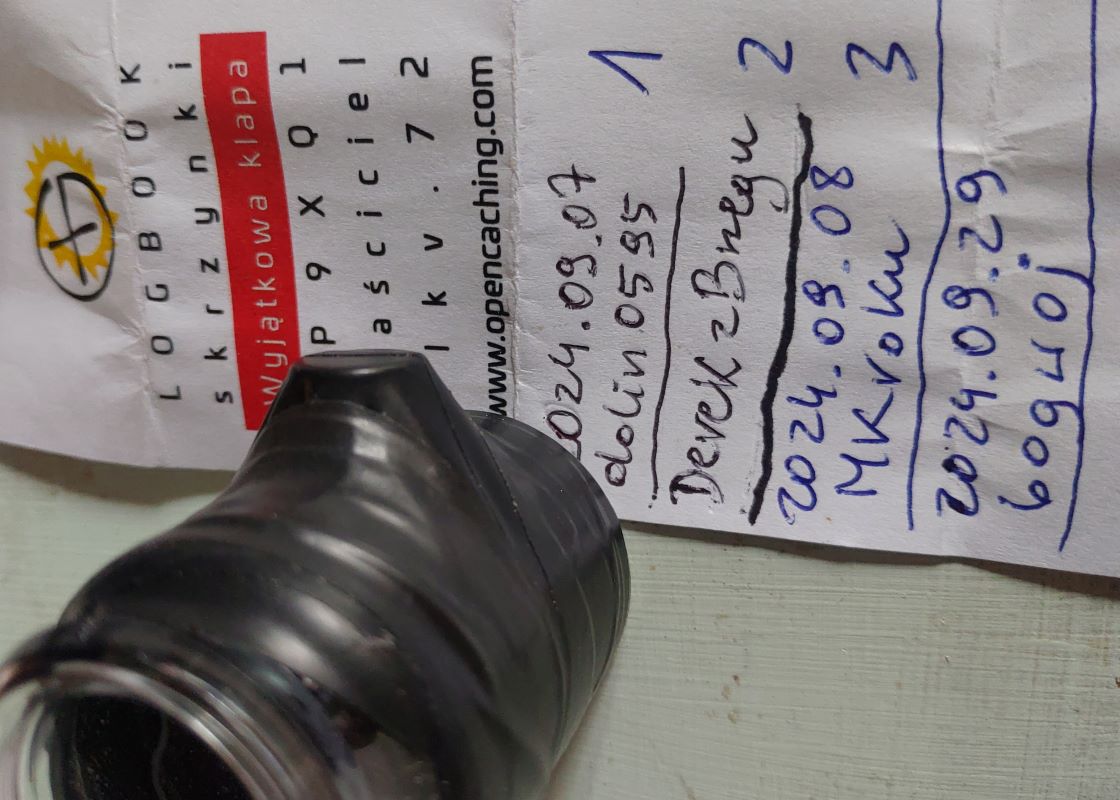 LOGBOOK
skrzynki
Wyjątkowa klapa
P9XQ1
aściciel
lkv.72
www.opencaching.com
2024.09.07 1
dolin0595
Derek z Brzegu 2
2024.09.08
MKroku 3
2024.09.29